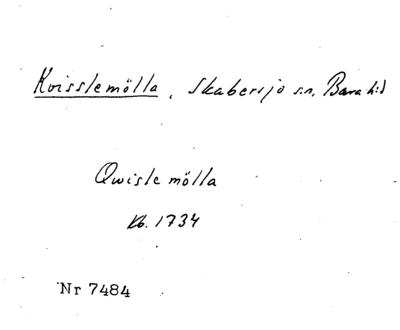 Kvisslemölla, Skabersjö s:n, Bara h:d
Qwisle mölla
Kb. 1734
Nr 7484